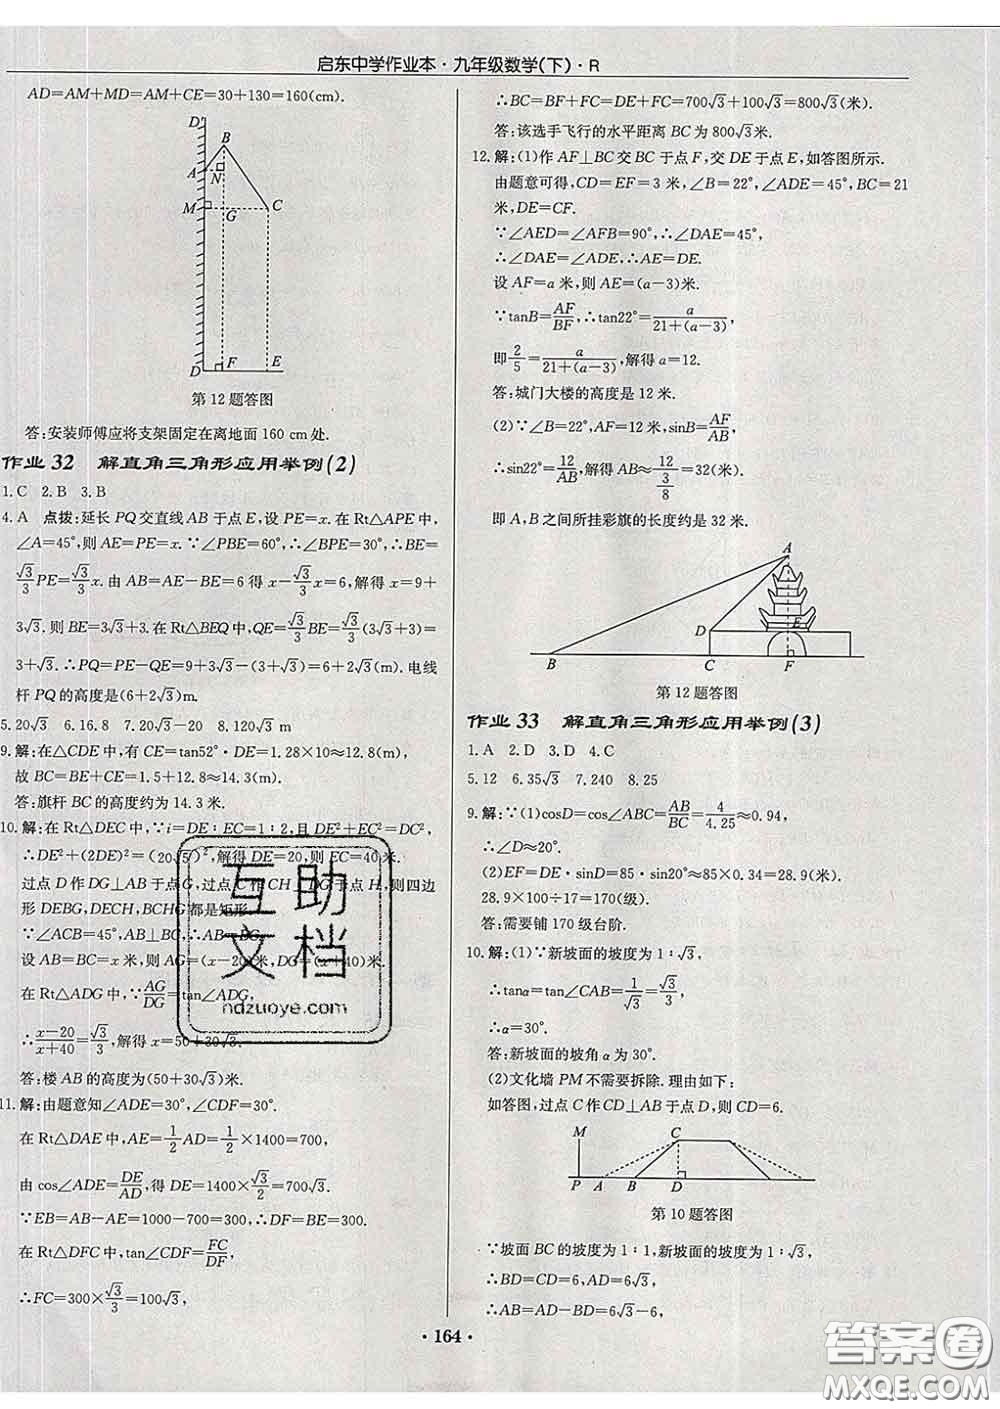 启东中学作业本·九年级数学(下)·R
AD=AM+MD=AM+CE=30+130=160(cm).
D
B
A
N
M
G
C
D
F
E
第12题答图
答:安装师傅应将支架固定在离地面160 cm处.
作业32 解直角三角形应用举例(2)
1.C 2.B 3.B
4.A 点拨:延长PQ交直线AB于点E,设PE=x.在Rt△APE中,
∠A=45°,则AE=PE=x.∵∠PBE=60°,∴∠BPE=30°,∴BE=
√3/3PE=√3/3x.由AB=AE−BE=6得x−√3/3x=6,解得x=9+
3√3.则BE=3√3+3.在Rt△BEQ中,QE=√3/3BE=√3/3(3√3+3)=
3+√3.∴PQ=PE−QE=9+3√3−(3+√3)=6+2√3(米).电线
杆PQ的高度是(6+2√3)m.
5.20√3 6.16.8 7.20√3−20 8.120√3 m
9.解:在△CDE中,有CE=tan52°·DE=1.28×10≈12.8(m).
故BC=BE+CE=1.5+12.8≈14.3(m).
答:旗杆BC的高度约为14.3米.
10.解:在Rt△DEC中,∵i=DE∶EC=1∶2,且DE²+EC²=DC²,
∴DE²+(2DE)²=(20√5)²,解得DE=20,则EC=40米.
过点D作DG⊥AB于点G,过点C作CH⊥DG于点H,则四边
形DEBG,DECH,BCHG都是矩形.
∵∠ACB=45°,AB⊥BC,∴AB=BC.
设AB=BC=x米,则AG=(x−20)米,DG=(x+40)米.
在Rt△ADG中,∵AG/DG=tan∠ADG,
∴(x−20)/(x+40)=√3/3,解得x=50+30√3.
答:楼AB的高度为(50+30√3)米.
11.解:由题意知∠ADE=30°,∠CDF=30°.
在Rt△DAE中,AE=1/2AD=1/2×1400=700,
由cos∠ADE=DE/AD,得DE=1400×√3/2=700√3.
∵EB=AB−AE=1000−700=300,∴DF=BE=300.
在Rt△DFC中,tan∠CDF=FC/DF,
∴FC=300×√3/3=100√3,
∴BC=BF+FC=DE+FC=700√3+100√3=800√3(米).
答:该选手飞行的水平距离BC为800√3米.
12.解:(1)作AF⊥BC交BC于点F,交DE于点E,如答图所示.
由题意可得,CD=EF=3米,∠B=22°,∠ADE=45°,BC=21
米,DE=CF.
∵∠AED=∠AFB=90°,∴∠DAE=45°,
∴∠DAE=∠ADE,∴AE=DE.
设AF=a米,则AE=(a−3)米.
∵tanB=AF/BF,∴tan22°=a/(21+(a−3)),
即2/5=a/(21+(a−3)),解得a=12.
答:城门大楼的高度是12米.
(2)∵∠B=22°,AF=12米,sinB=AF/AB,
∴sin22°=12/AB,∴AB≈12/(3/8)=32(米).
即A,B之间所挂彩旗的长度约是32米.
A
D
E
B
C
F
第12题答图
作业33 解直角三角形应用举例(3)
1.A 2.D 3.D 4.C
5.12 6.35√3 7.240 8.25
9.解:∵(1)cosD=cos∠ABC=AB/BC=4/4.25≈0.94,
∴∠D≈20°.
(2)EF=DE·sinD=85·sin20°≈85×0.34=28.9(米).
28.9×100÷17=170(级).
答:需要铺170级台阶.
10.解:(1)∵新坡面的坡度为1∶√3,
∴tanα=tan∠CAB=1/√3=√3/3,
∴α=30°.
答:新坡面的坡角α为30°.
(2)文化墙PM不需要拆除.理由如下:
如答图,过点C作CD⊥AB于点D,则CD=6.
M
C
P
A
B
D
第10题答图
∵坡面BC的坡度为1∶1,新坡面的坡度为1∶√3,
∴BD=CD=6,AD=6√3,
∴AB=AD−BD=6√3−6,
·164·
互助
文档
ndzuoye.com
答案圈
MXQE.COM